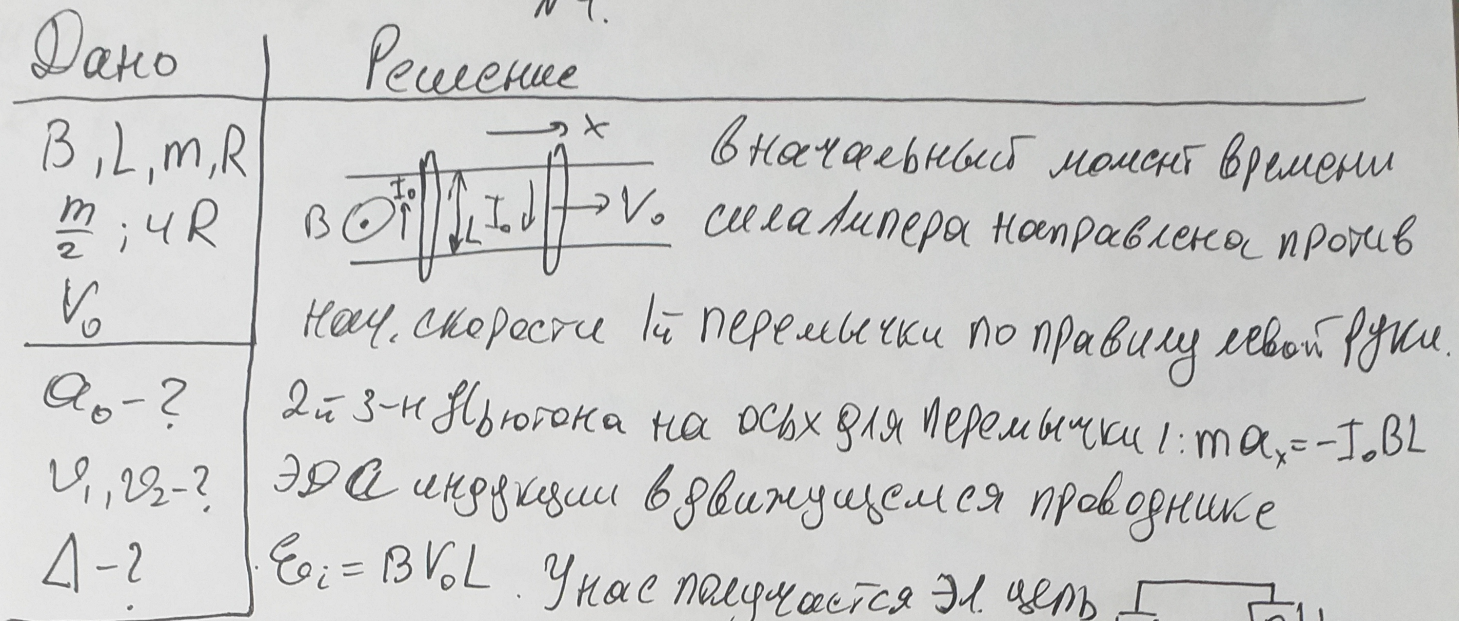 № 4.
Дано Решение
B, L, m, R
m/2 ; 4R
V₀
a₀ - ?
v₁, v₂ - ?
Δ - ?
x
B I₀ L I₀ V₀
В начальный момент времени
сила Ампера направлена против
нач. скорости 1й перемычки по правилу левой руки.
2й З-н Ньютона на ось x для перемычки 1: maₓ = -I₀BL
ЭДС индукции в движущемся проводнике
Ɛi = BV₀L. У нас получается эл. цепь